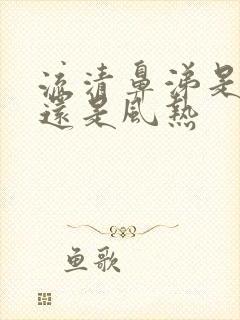 流清鼻涕是
還是風熱
鱼歌